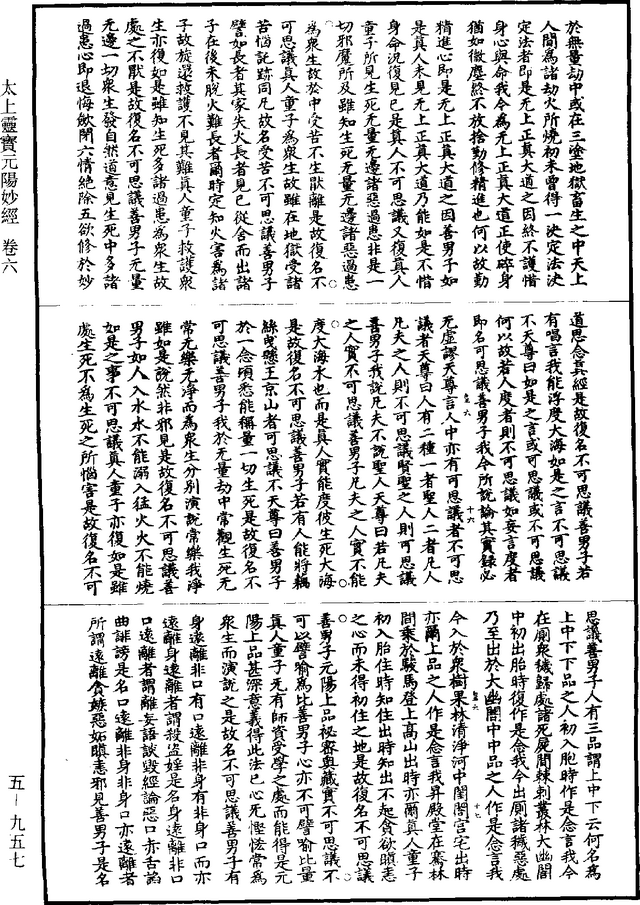 於無量劫中或在三塗地獄畜生之中天上
人間為諸劫火所燒初未曾得一決定法決
定法者即是无上正真大道之因終不護惜
身心與命我今為无上正真大道正使碎身
猶如微塵終不放捨勤修精進也何以故勤
精進心即是无上正真大道之因善男子如
是真人未見无上正真大道乃能如是不惜
身命況復見已是真人不可思議又復真人
童子所見生死无量无邊諸惡過患非是一
切邪魔所及雖知生死无量无邊諸惡過患
為衆生故於中受苦不生猒離是故復名不
可思議真人童子為衆生故雖在地獄受諸
苦惱託跡同凡故名受苦不可思議善男子
譬如長者其家失火長者見已從舍而出諸
子在後未脫火難長者爾時定知火害為諸
子故旋還救護不見其難真人童子救護衆
生亦復如是雖知生死多諸過患為衆生故
處之不猒是故復名不可思議善男子无量
无邊一切衆生發自然道意見生死中多諸
過患心即退悔斂閉六情絕除五欲修於妙
道思念真經是故復名不可思議善男子若
有唱言我能浮度大海如是之言不可思議
不天尊曰如是之言或可思議或不可思議
何以故若人度者則不可思議如妄言度者
即名可思議善男子我今所說論其實録必
六 十六
无虛謬天尊言人中亦有可思議者不可思
議者天尊曰人有二種一者聖人二者凡人
凡夫之人則不可思議賢聖之人則可思議
善男子我說凡夫不說聖人天尊曰若凡夫
之人實不可思議善男子凡夫之人實不能
度大海水也而是真人實能度彼生死大海
是故復名不可思議善男子若有人能將藕
絲曳懸王京山者可思議不天尊曰善男子
於一念頃悉能稱量一切生死是故復名不
可思議善男子我於无量劫中常觀生死无
常无樂无淨而為衆生分別演說常樂我淨
雖如是說然非邪見是故復名不可思議善
男子如人入水水不能溺入猛火火不能燒
如是之事不可思議真人童子亦復如是雖
處生死不為生死之所惱害是故復名不可
思議善男子人有三品謂上中下云何名為
上中下下品之人初入胞時作是念言我今
在廁衆穢歸處諸死屍間棘刺叢林大幽闇
中初出胎時復作是念我今出廁諸穢惡處
乃至出於大幽闇中中品之人作是念言我
六 十七
今入於衆樹果林清淨河中閨閤宫宅出時
亦爾上品之人作是念言我昇殿堂在騫林
間乘於駿馬登上高山出時亦爾真人童子
初入胎住時知住出時知出不起貪欲瞋恚
之心而未得初住之地是故復名不可思議
善男子元陽上品祕密奥藏實不可思議不
可以譬喻為比善男子心亦不可譬喻比量
真人童子无有師資受學之處而能得是元
陽上品甚深意義得此法已心死慳恡常為
衆生而演說之是故名不可思議善男子有
身遠離非口有口遠離非身有非身非口而亦
遠離身遠離者謂殺盗婬是名身遠離非口
口遠離者謂離妄語談毁經論惡口亦舌諂
曲誹謗是名口遠離非身非身口亦遠離者
所謂遠離貪嫉惡妬瞋恚邪見善男子是名
太上靈寶元陽妙經 卷六
五－九五七